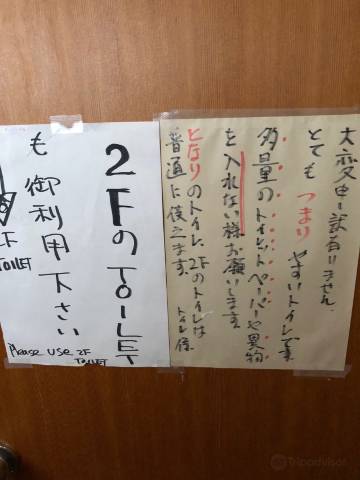 大変申し訳有りません。
とても つまり やすいトイレです
多量のトイレットペーパーや異物
を入れない様お願いします。
となりのトイレ、2Fのトイレは
普通に使えます。
トイレ様
2FのTOILET
も御利用下さい
Please USE 2F
TOILET
2F
TOILET
Tripadvisor